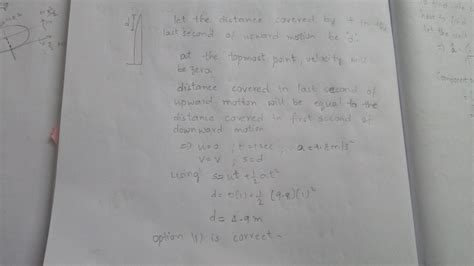 d
let the distance covered by it in the
last second of upward motion be 'd'.
at the topmost point, velocity will
be zero.
distance covered in last second of
upward motion will be equal to the
distance covered in first second of
downward motion
⇒ u=0 , t=1sec , a=9.8m/s²
v=v , s=d
using s=ut+½at²
d= 0(1)+½ (9.8)(1)²
d= 4.9m
option is correct.